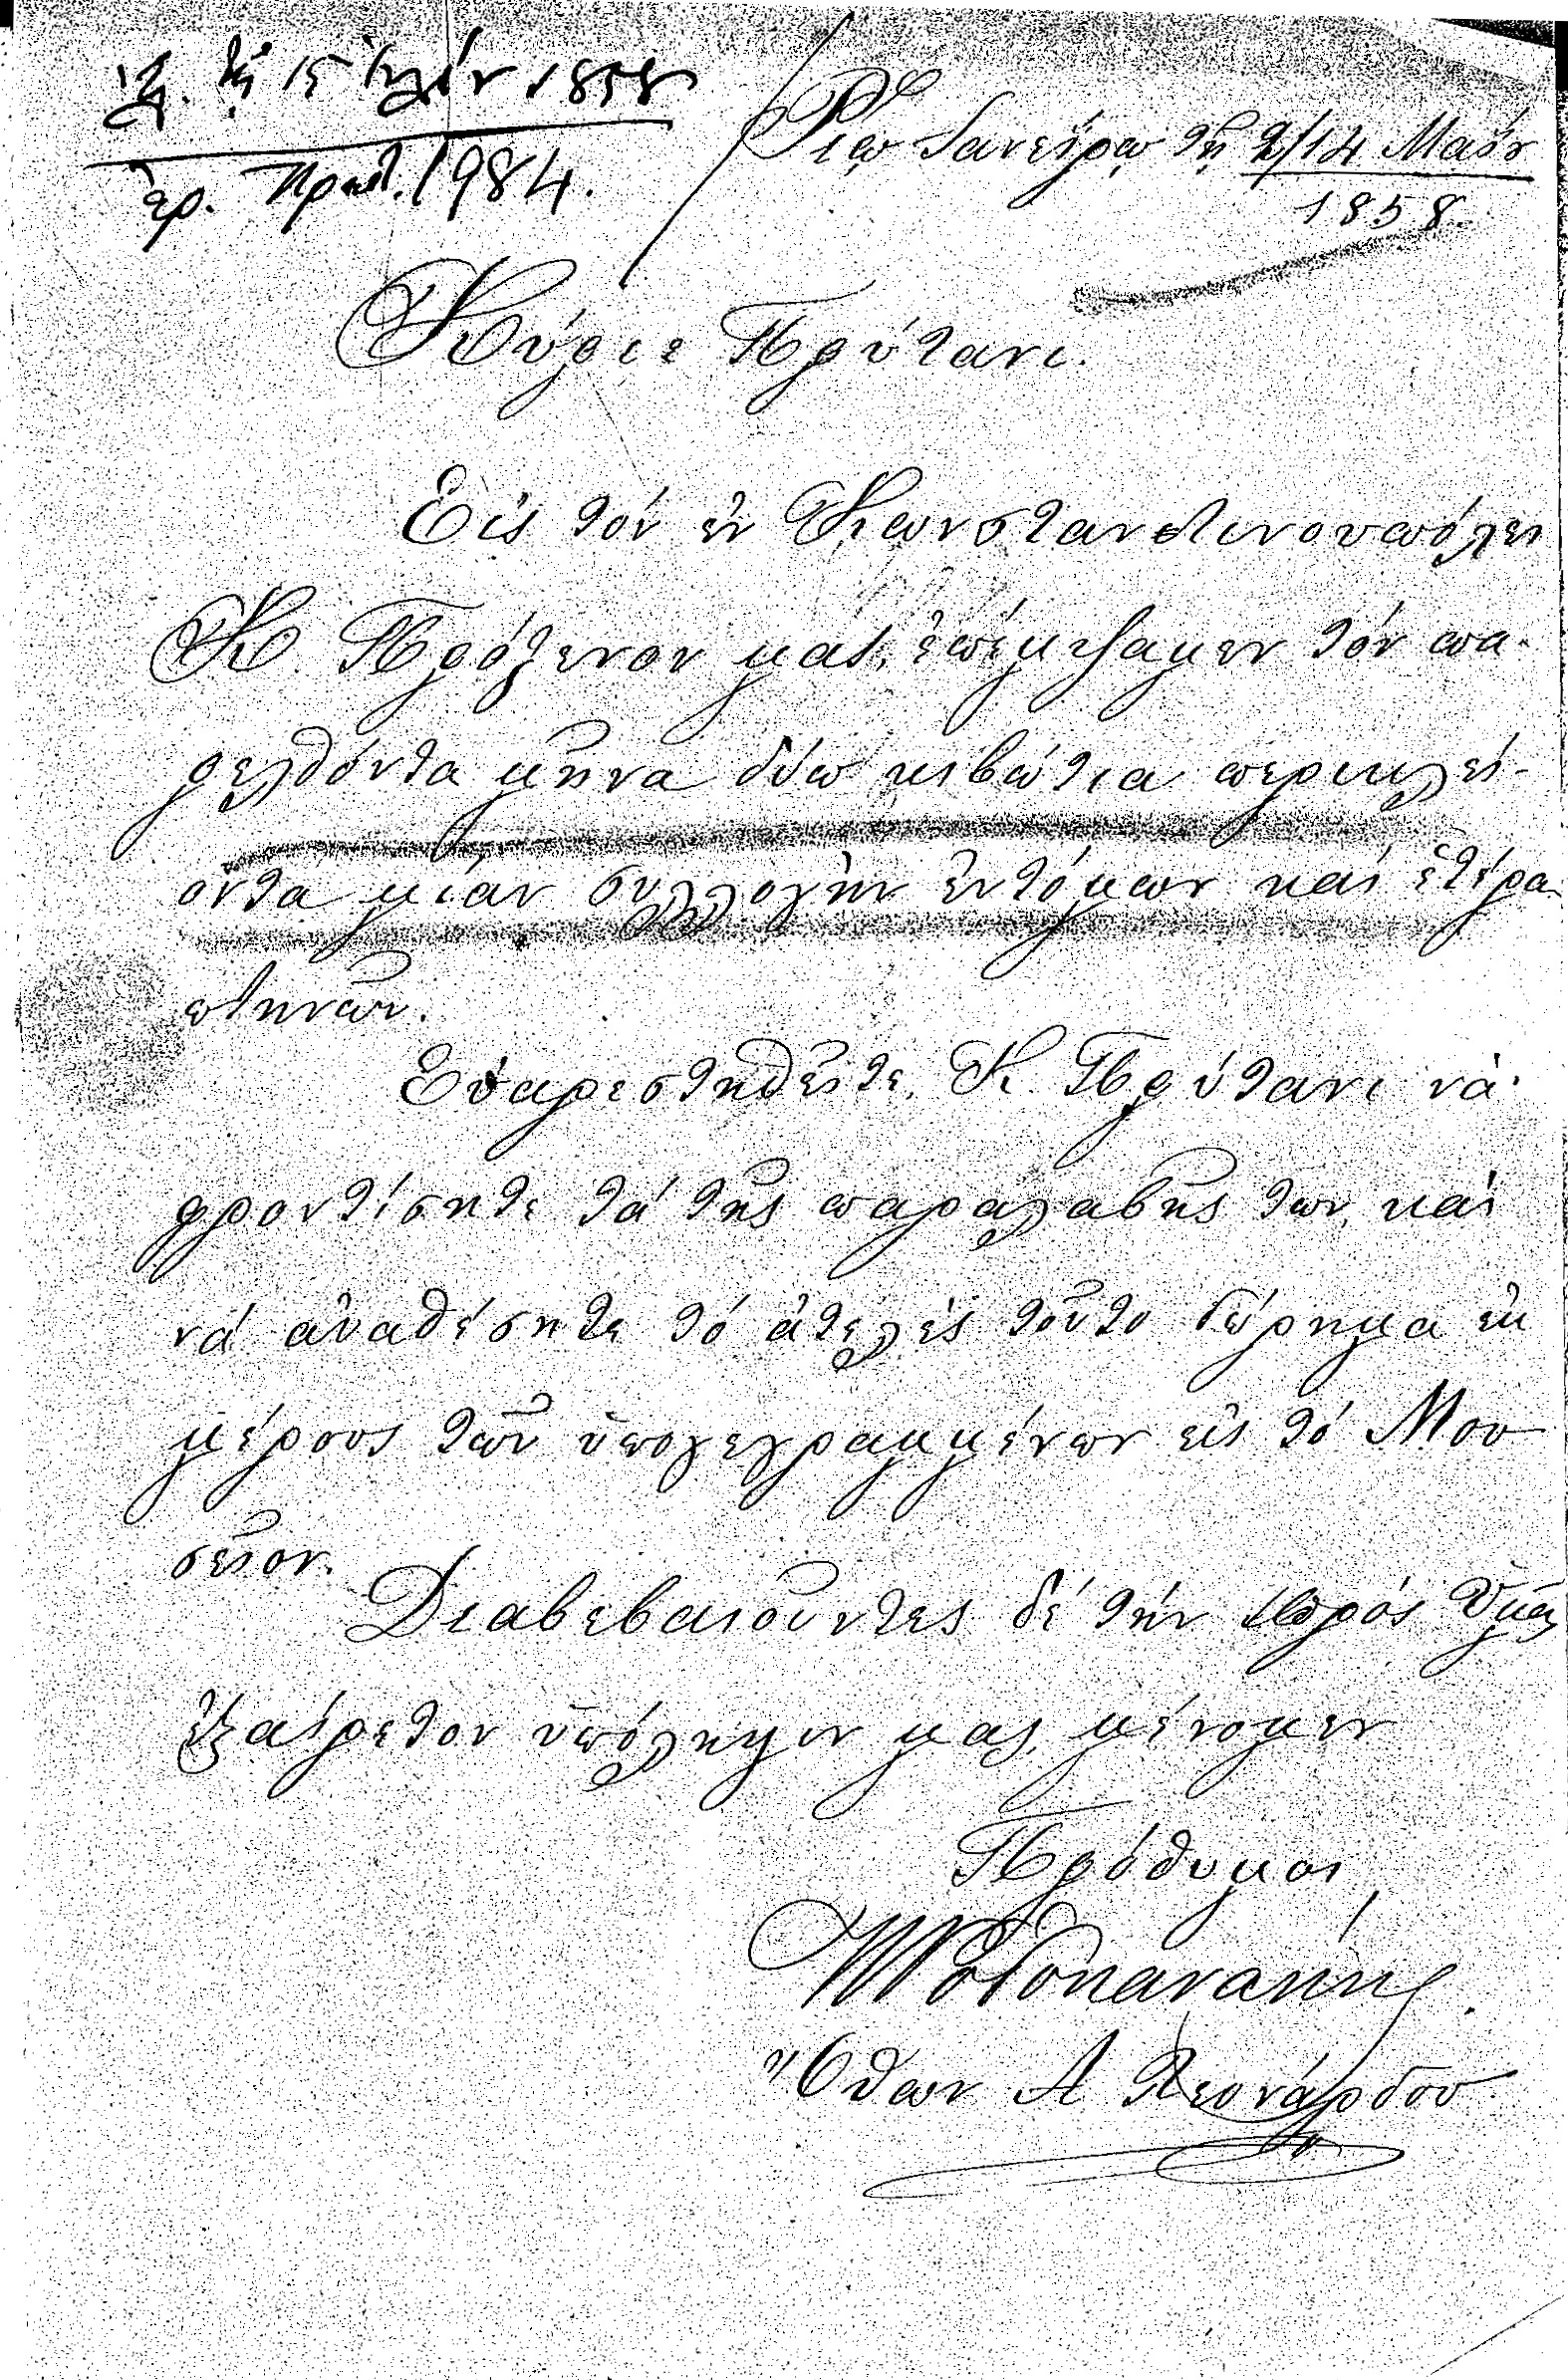 τῇ 15 Ἰουλίου 1858
ἀρ. Πρωτ. 1984.
Ρίῳ Ἰανείρῳ τῇ 2/14 Μαΐου
1858.
Κύριε Πρύτανι.
Εἰς τόν ἐν Κωνσταντινουπόλει
Κ. Πρόξενον μας, ἐπέμψαμεν τόν πα-
ρελθόντα μῆνα δύω κιβώτια περικλεί-
οντα μίαν συλλογήν ἐντόμων καί ἑτέρα
πτηνῶν.
Εὐαρεστηθεῖτε, Κ. Πρύτανι νά
φροντίσητε τά τῆς παραλαβῆς των, καί
νά ἀναθέσητε τό ἀτελές τοῦτο δώρημα ἐκ
μέρους τῶν ὑπογεγραμμένων εἰς τό Μου
σεῖον.
Διαβεβαιοῦντες δέ τήν πρός Ὑμᾶς
ἐξαίρετον ὑπόληψιν μας, μένομεν
Πρόθυμοι
Ὄθων Α Λεονάρδου